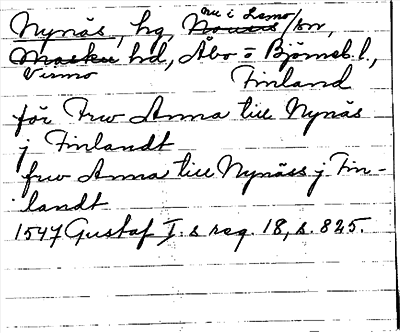 nu i Lemo
Nynäs, hg, Nousis/sn,
Masku hd, Åbo o Björneb. l.,
Virmo Finland
för Frw Anna till Nynäs
j Finlandt
frw Anna till Nynäss j Fin-
landt
1547 Gustaf I. s reg. 18, s. 825.